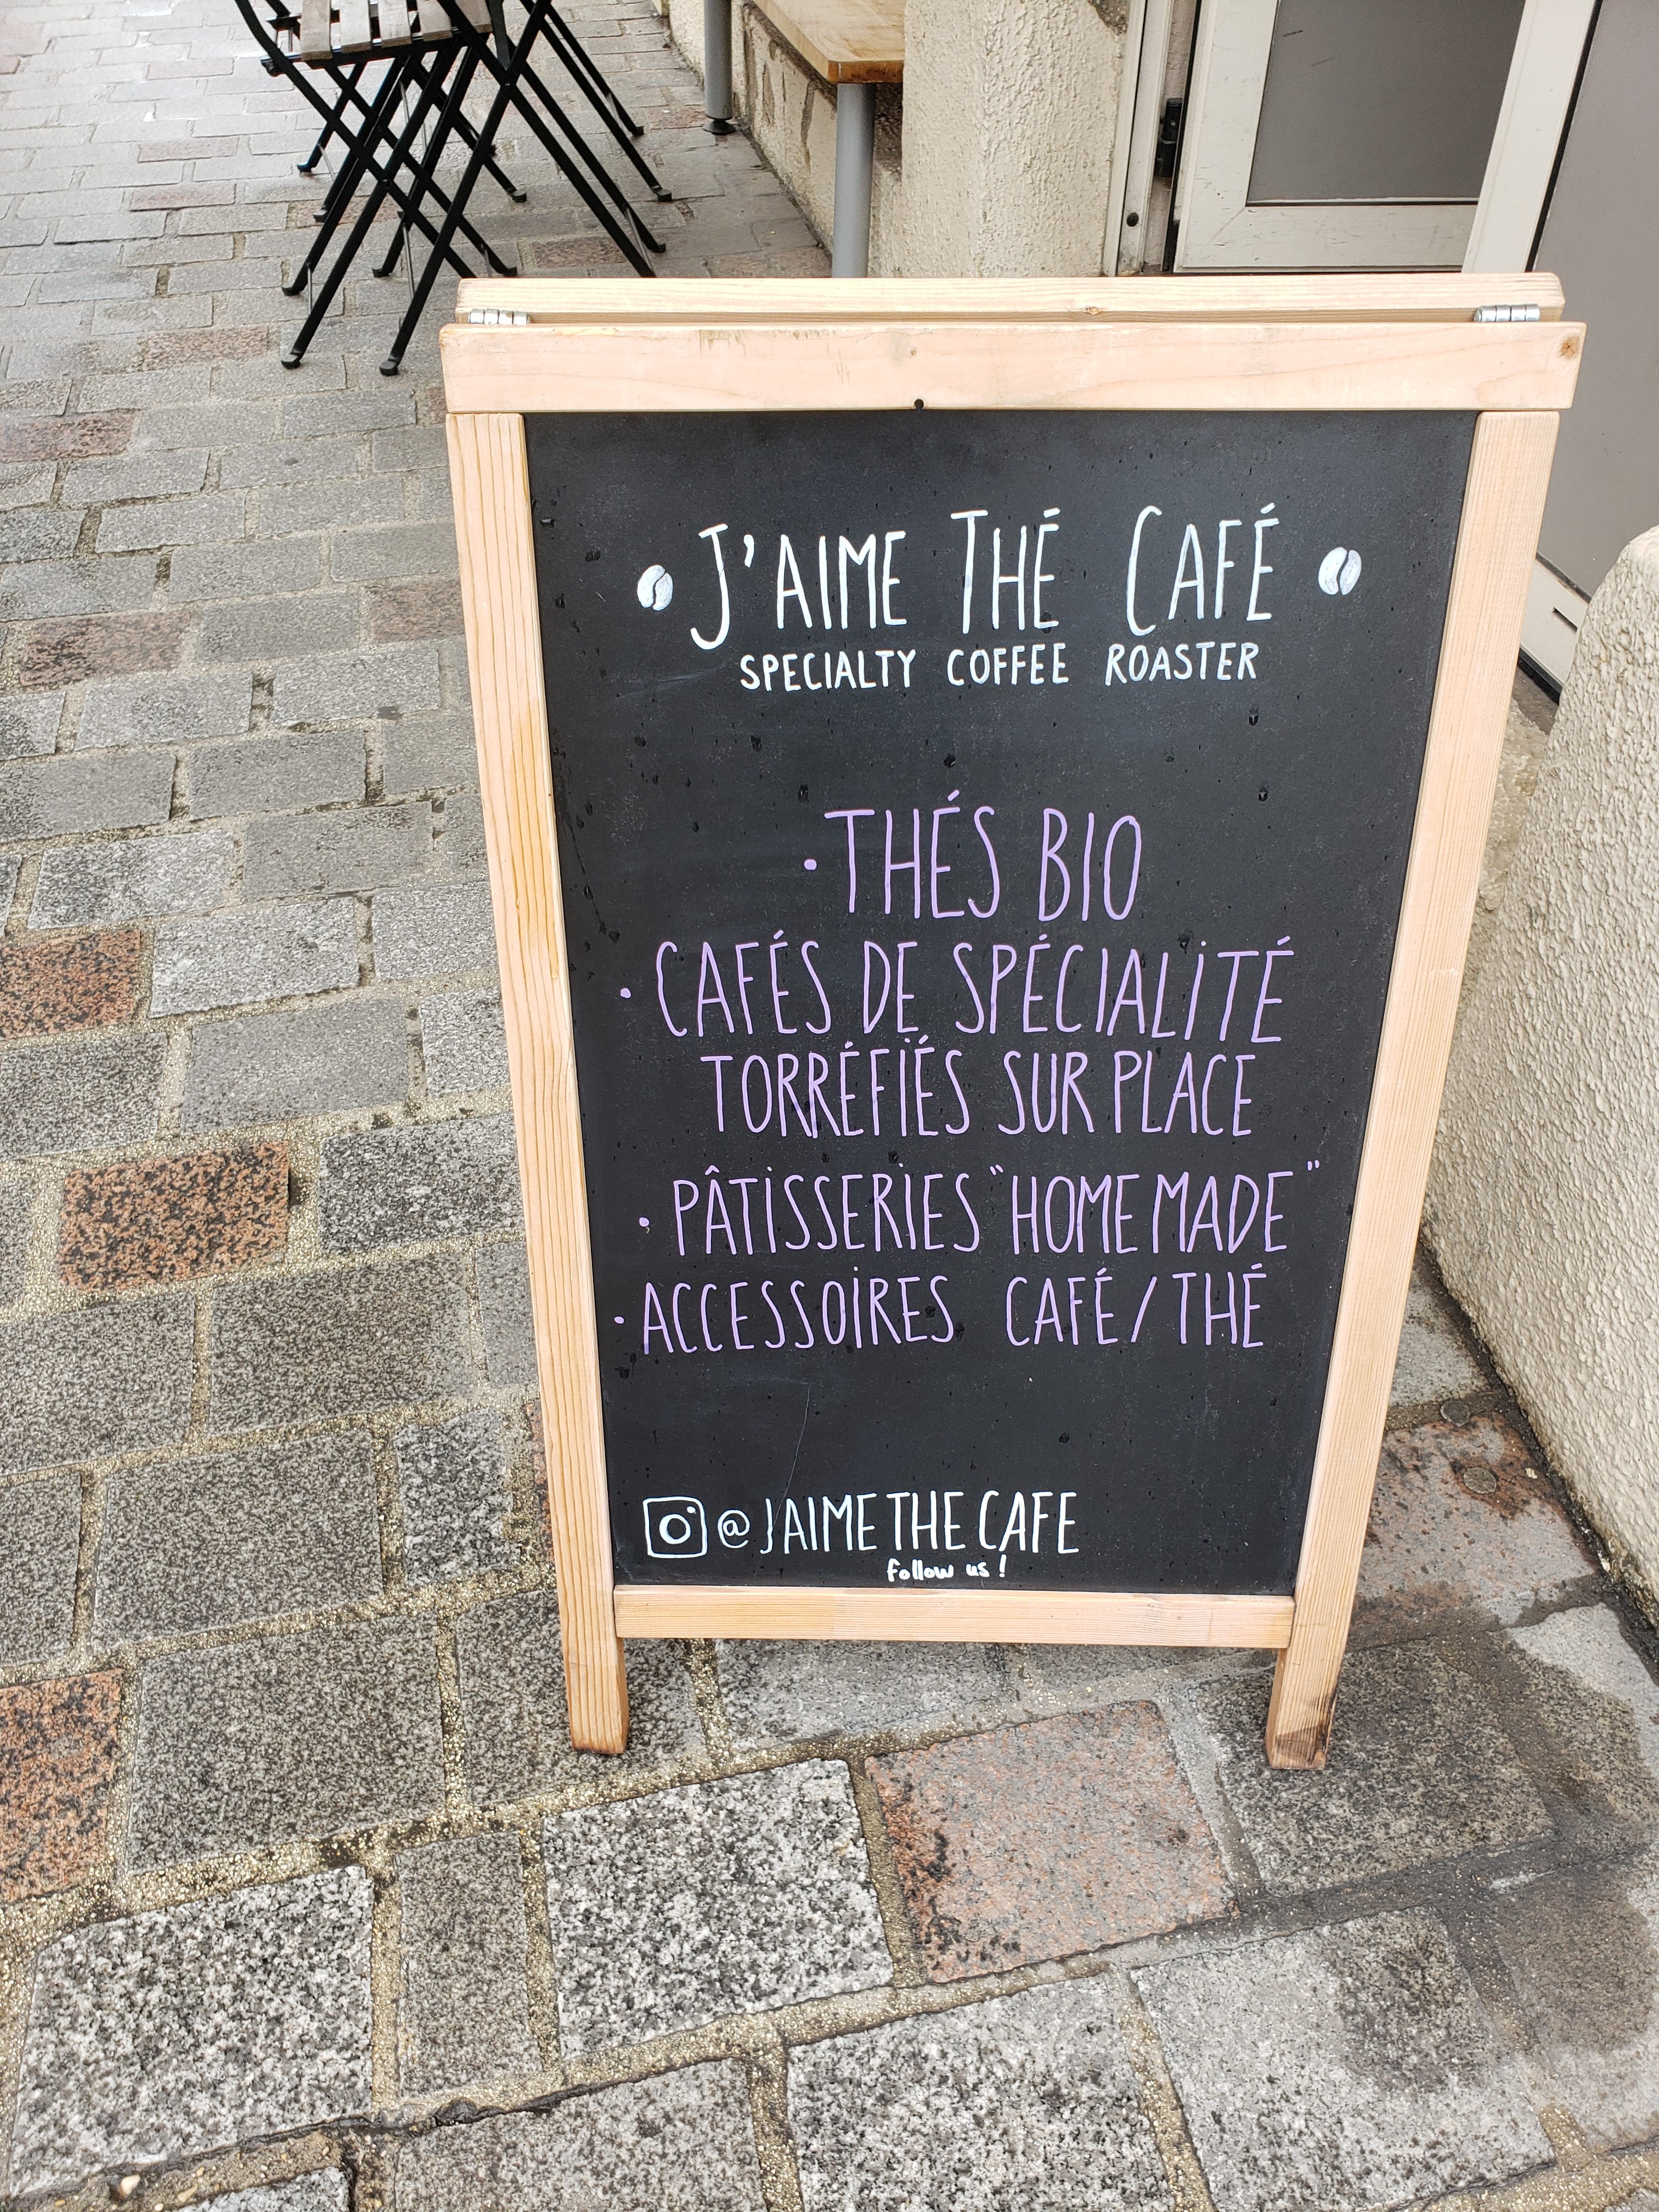 J'AIME THÉ CAFÉ
SPECIALTY COFFEE ROASTER
· THÉS BIO
· CAFÉS DE SPÉCIALITÉ
TORRÉFIÉS SUR PLACE
· PÂTISSERIES "HOME MADE"
· ACCESSOIRES CAFÉ/THÉ
@JAIMETHECAFE
follow us!